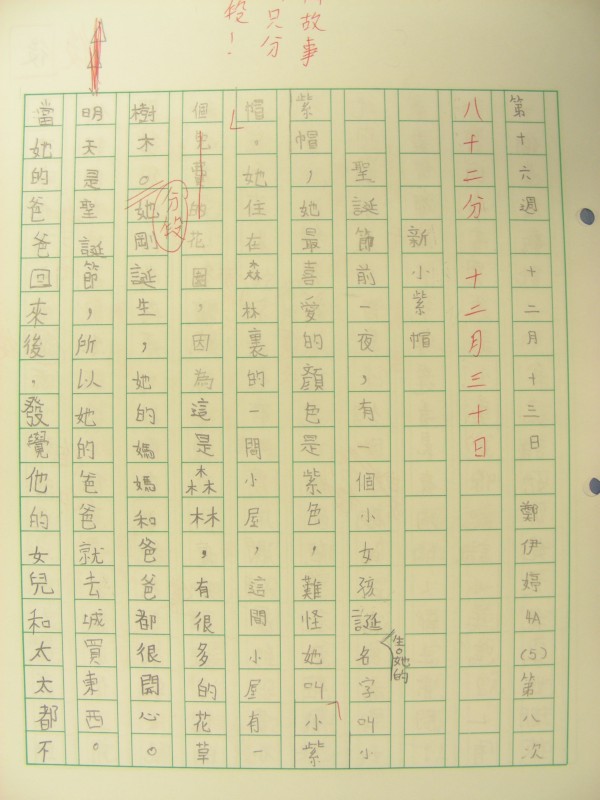 故事
只分
第十六週　十二月十三日　鄭伊婷4A(5)第八次
八十二分　十二月三十日
新小紫帽
聖誕節前一夜，有一個小女孩誕名字叫小
生。她的
紫帽，她最喜愛的顏色是紫色，難怪她叫小紫
帽。她住在森林裏的一間小屋，這間小屋有一
個的花園，因為這是森林，有很多的花草
樹木。她剛誕生，她的媽媽和爸爸都很開心。
分段
明天是聖誕節，所以她的爸爸就去城買東西。
當她的爸爸回來後，發覺他的女兒和太太都不